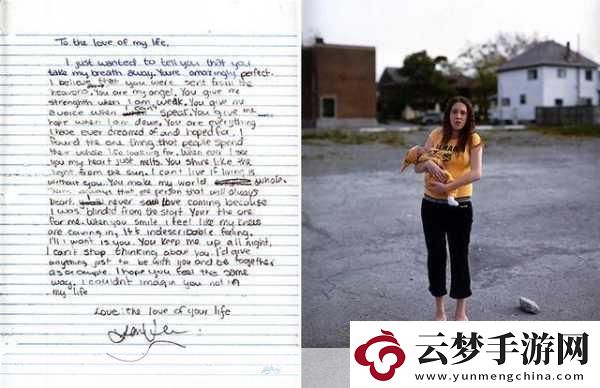 To the love of my life,
I just wanted to tell you that you
take my breath away. Youre amazingly perfect.
I believe that you were sent from the
heavens. You are my angel. You give me
strenghth when I am weak. You give me
a voice when I cant speak. You give me
hope when I am down. You are everything
I have ever dreamed of and hoped for. I
found the one thing that people spend
their whole life looking for. When ever I see
you my heart just melts. You shine like the
light from the sun. I cant live if living is
without you. You make my world whole.
always that one person that will always
heart. I never saw love coming because
I was blinded from the start. Your the one
for me. When you smile I feel like my knees
are caving in. Its indescribable feeling.
All I want is you. You keep me up all night,
I can't stop thinking about you. I'd give
anything just to be with you and be together
as a couple. I hope you feel the same
way. I couldn't imagine you not in
my life
Love: the love of your life
云梦手游网
www.yunmengchina.com